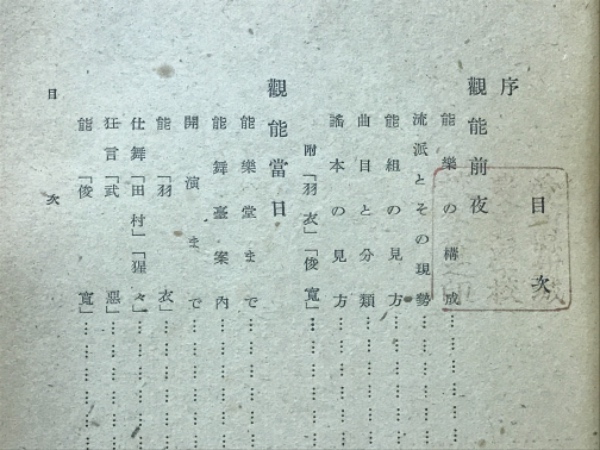 目次
序
觀能前夜
能樂の構成……………
流派とその現勢……………
能組の見方……………
曲目と分類……………
謠本の見方……………
附「羽衣」「俊寬」……………
觀能當日
能樂堂まで……………
能舞臺案內……………
開演まで……………
能「羽衣」……………
仕舞「田村」「猩々」……………
狂言「武惡」……………
能「俊寬」……………
目次